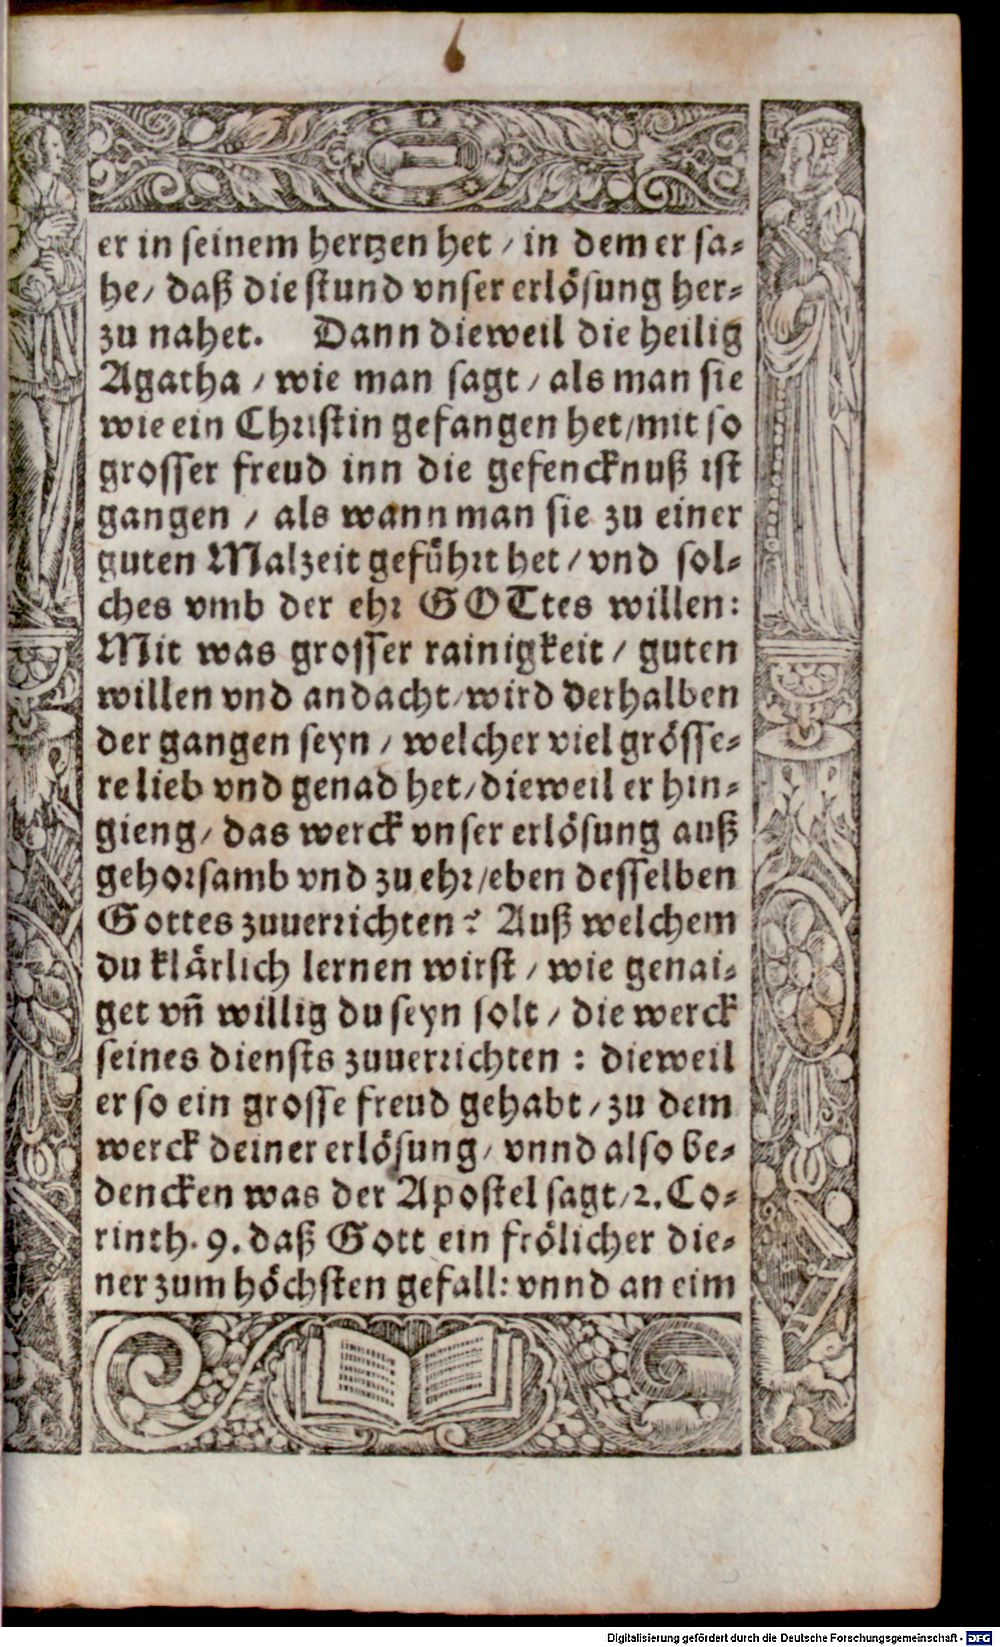 er in seinem hertzen het / in dem er sa-
he / daß die stund vnser erlösung her-
zu nahet. Dann dieweil die heilig
Agatha / wie man sagt / als man sie
wie ein Christin gefangen het / mit so
grosser freud inn die gefencknuß ist
gangen / als wann man sie zu einer
guten Malzeit geführt het / vnd sol-
ches vmb der ehr GOTtes willen:
Mit was grosser rainigkeit / guten
willen vnd andacht / wird derhalben
der gangen seyn / welcher viel grösse-
re lieb vnd genad het / dieweil er hin-
gieng / das werck vnser erlösung auß
gehorsamb vnd zu ehr / eben desselben
Gottes zuuerrichten? Auß welchem
du klärlich lernen wirst / wie genai-
get vñ willig du seyn solt / die werck
seines diensts zuuerrichten : dieweil
er so ein grosse freud gehabt / zu dem
werck deiner erlösung / vnnd also be-
dencken was der Apostel sagt / 2. Co-
rinth. 9. daß Gott ein frölicher die-
ner zum höchsten gefall: vnnd an eim
Digitalisierung gefördert durch die Deutsche Forschungsgemeinschaft - DFG